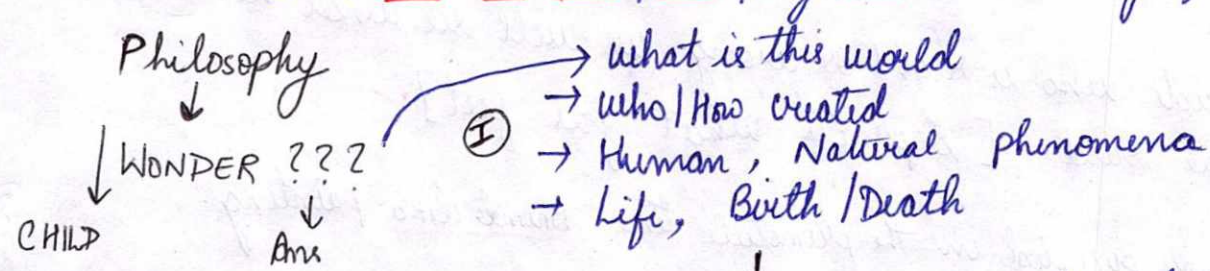 Philosophy
WONDER ???
CHILD
Ans
I
→ what is this world
→ who/How created
→ Human, Natural phenomena
→ Life, Birth/Death